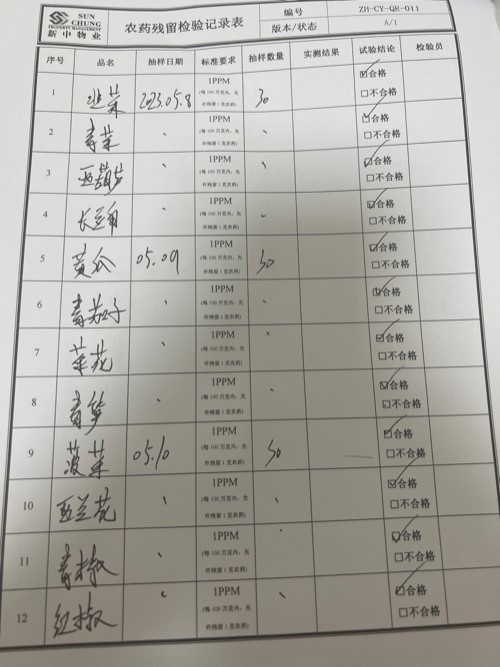 SUN CHUNG
PROPERTY MANAGEMENT
新中物业
农药残留检验记录表
编号 ZH-CY-QR-011
版本/状态 A/1
序号 品名 抽样日期 标准要求 抽样数量 实测结果 试验结论 检验员
1 韭菜 2023.05.8 1PPM (每100万克内,允许残留1克农药) 30 ☑合格 □不合格
2 青菜 、 1PPM (每100万克内,允许残留1克农药) 、 ☑合格 □不合格
3 西葫芦 、 1PPM (每100万克内,允许残留1克农药) 、 ☑合格 □不合格
4 长豆角 、 1PPM (每100万克内,允许残留1克农药) 、 ☑合格 □不合格
5 黄瓜 05.09 1PPM (每100万克内,允许残留1克农药) 30 ☑合格 □不合格
6 青茄子 、 1PPM (每100万克内,允许残留1克农药) 、 ☑合格 □不合格
7 菜花 、 1PPM (每100万克内,允许残留1克农药) 、 ☑合格 □不合格
8 青笋 、 1PPM (每100万克内,允许残留1克农药) 、 ☑合格 □不合格
9 菠菜 05.10 1PPM (每100万克内,允许残留1克农药) 30 ☑合格 □不合格
10 西兰花 、 1PPM (每100万克内,允许残留1克农药) 、 ☑合格 □不合格
11 青椒 、 1PPM (每100万克内,允许残留1克农药) 、 ☑合格 □不合格
12 红椒 、 1PPM (每100万克内,允许残留1克农药) 、 ☑合格 □不合格